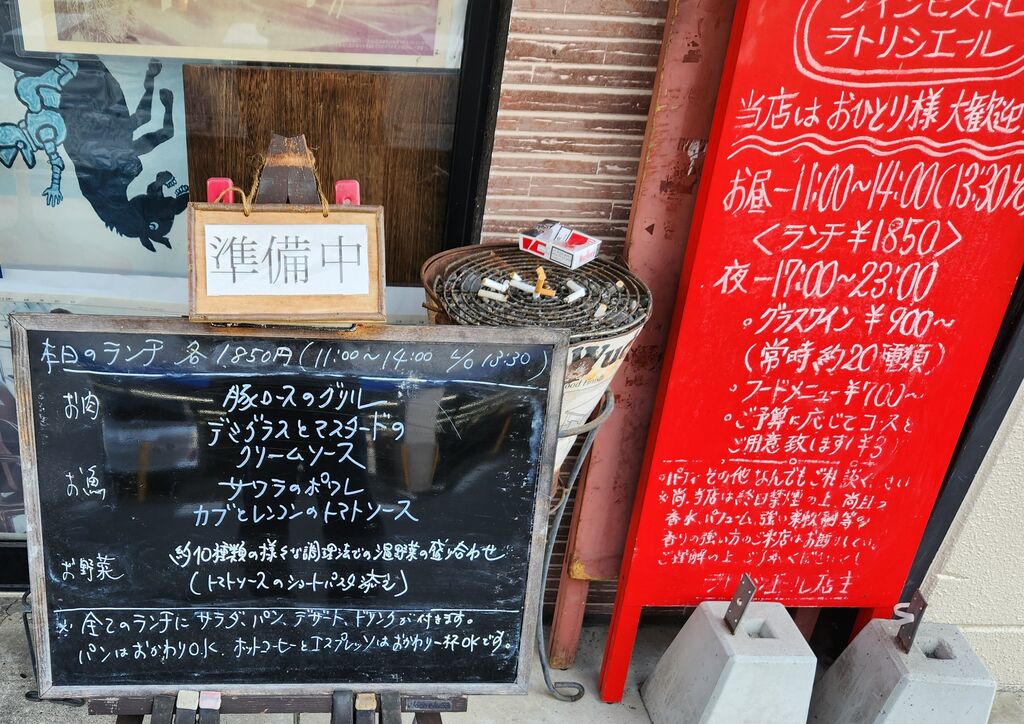 準備中
本日のランチ 各1.850円(11:00〜14:00 L/O 13:30)
お肉
豚ロースのグリル
デミグラスとマスタードの
クリームソース
お魚
サワラのポワレ
カブとレンコンのトマトソース
お野菜
約10種類の様々な調理法での温野菜の盛り合わせ
(トマトソースのショートパスタ添え)
※全てのランチに サラダ、パン、デザート、ドリンクが付きます。
パンはおかわりO.K. ホットコーヒーとエスプレッソはおかわり一杯OKです。
ワインビストロ
ラトリシエール
当店は おひとり様 大歓迎
お昼ー11:00〜14:00(13:30%
<ランチ ¥1850>
夜ー17:00〜23:00
・グラスワイン ¥900〜
(常時約20種類)
・フードメニュー ¥700〜
・ご予算に応じてコースを
ご用意致します(¥3)
※パーティその他なんでもご相談ください
※尚、当店は終日禁煙の上、尚且つ
香水、パフューム、強い柔軟剤等の
香りの強い方のご来店はお断りしています。
ご理解の上
ラトリシエール店主